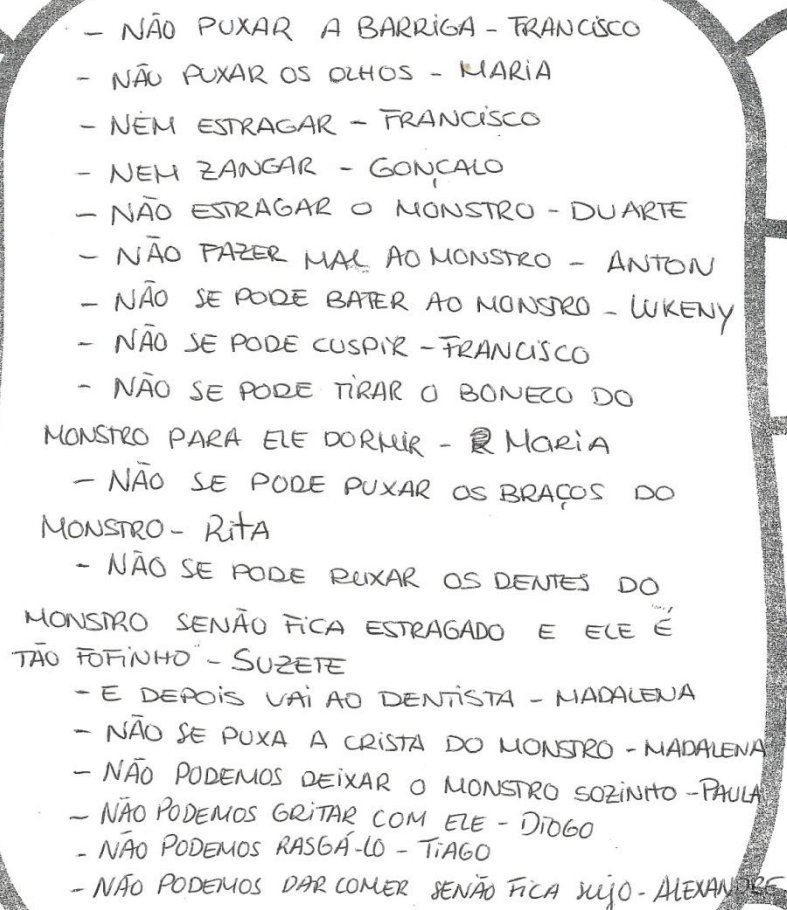 - NÃO PUXAR A BARRIGA - FRANCISCO
- NÃO PUXAR OS OLHOS - MARIA
- NEM ESTRAGAR - FRANCISCO
- NEM ZANGAR - GONÇALO
- NÃO ESTRAGAR O MONSTRO - DUARTE
- NÃO FAZER MAL AO MONSTRO - ANTON
- NÃO SE PODE BATER AO MONSTRO - LUKENY
- NÃO SE PODE CUSPIR - FRANCISCO
- NÃO SE PODE TIRAR O BONECO DO
MONSTRO PARA ELE DORMIR - MARIA
- NÃO SE PODE PUXAR OS BRAÇOS DO
MONSTRO - RITA
- NÃO SE PODE PUXAR OS DENTES DO
MONSTRO SENÃO FICA ESTRAGADO E ELE É
TÃO FOFINHO - SUZETE
- E DEPOIS VAI AO DENTISTA - MADALENA
- NÃO SE PUXA A CRISTA DO MONSTRO - MADALENA
- NÃO PODEMOS DEIXAR O MONSTRO SOZINHO - PAULA
- NÃO PODEMOS GRITAR COM ELE - DIOGO
- NÃO PODEMOS RASGÁ-LO - TIAGO
- NÃO PODEMOS DAR COMER SENÃO FICA SUJO - ALEXANDRE